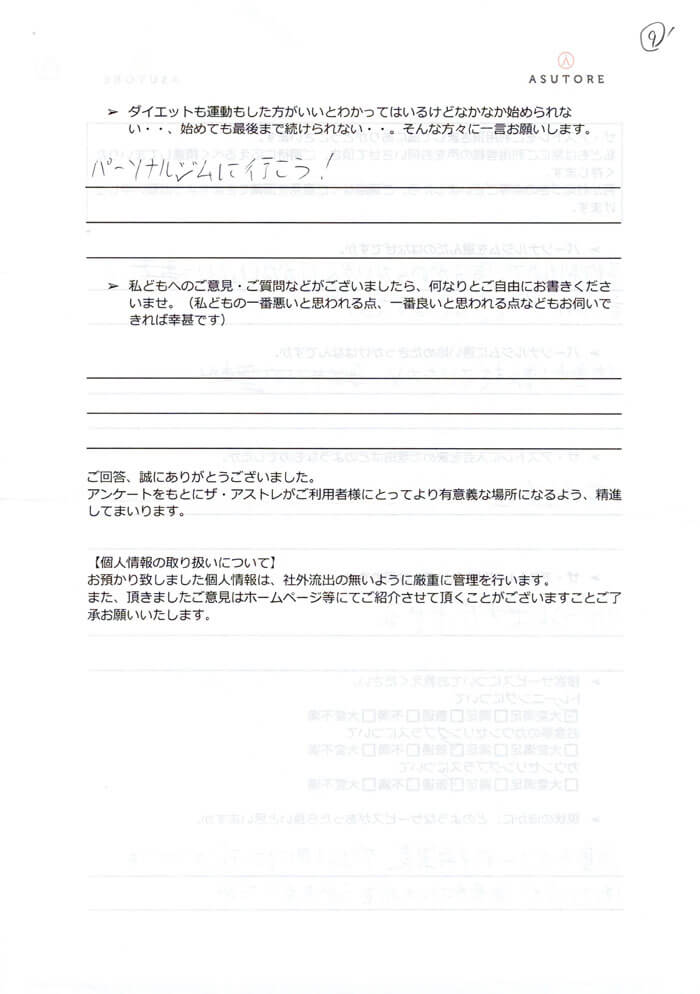 9'
ASUTORE
➢ ダイエットも運動もした方がいいとわかってはいるけどなかなか始められな
い・・、始めても最後まで続けられない・・。そんな方々に一言お願いします。
パーソナルジムに行こう!
➢ 私どもへのご意見・ご質問などがございましたら、何なりとご自由にお書きくださ
いませ。（私どもの一番悪いと思われる点、一番良いと思われる点などもお伺いで
きれば幸甚です）
ご回答、誠にありがとうございました。
アンケートをもとにザ・アストレがご利用者様にとってより有意義な場所になるよう、精進
してまいります。
【個人情報の取り扱いについて】
お預かり致しました個人情報は、社外流出の無いように厳重に管理を行います。
また、頂きましたご意見はホームページ等にてご紹介させて頂くことがございますことご了
承お願いいたします。